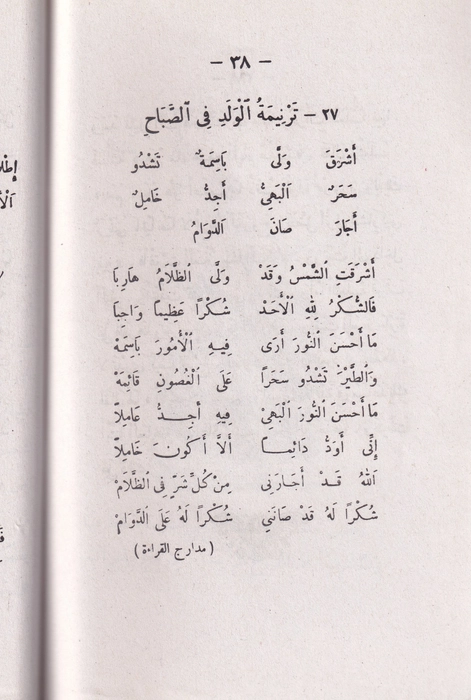 — ٣٨ —
٢٧ – تَرْنِيمَةُ ٱلْوَلَدِ فِى ٱلصَّبَاحِ
أَشْرَقَ وَلَّى بَاسِمَةٌ تَشْدُو
سَحَرٌ ٱلْبَهِىُّ أَجِدُّ خَامِلٌ
أَجَارَ صَانَ ٱلدَّوَامُ
أَشْرَقَتِ ٱلشَّمْسُ وَقَدْ وَلَّى ٱلظَّلَامُ هَارِبَا
فَالشُّكْرُ لِلّٰهِ ٱلْأَحَدْ شُكْرًا عَظِيمًا وَاجِبَا
مَا أَحْسَنَ ٱلنُّورَ أَرَى فِيهِ ٱلْأُمُورَ بَاسِمَهْ
وَٱلطَّيْرَ تَشْدُو سَحَرًا عَلَى ٱلْغُصُونِ قَائِمَهْ
مَا أَحْسَنَ ٱلنُّورَ ٱلْبَهِىْ فِيهِ أَجِدُّ عَامِلًا
إِنِّى أَوَدُّ دَائِمًا أَلَّا أَكُونَ خَامِلًا
اَللهُ قَدْ أَجَارَنِى مِنْ كُلِّ شَرٍّ فِى ٱلظَّلَامْ
شُكْرًا لَهُ قَدْ صَانَنِى شُكْرًا لَهُ عَلَى ٱلدَّوَامْ
( مدارج القراءة )